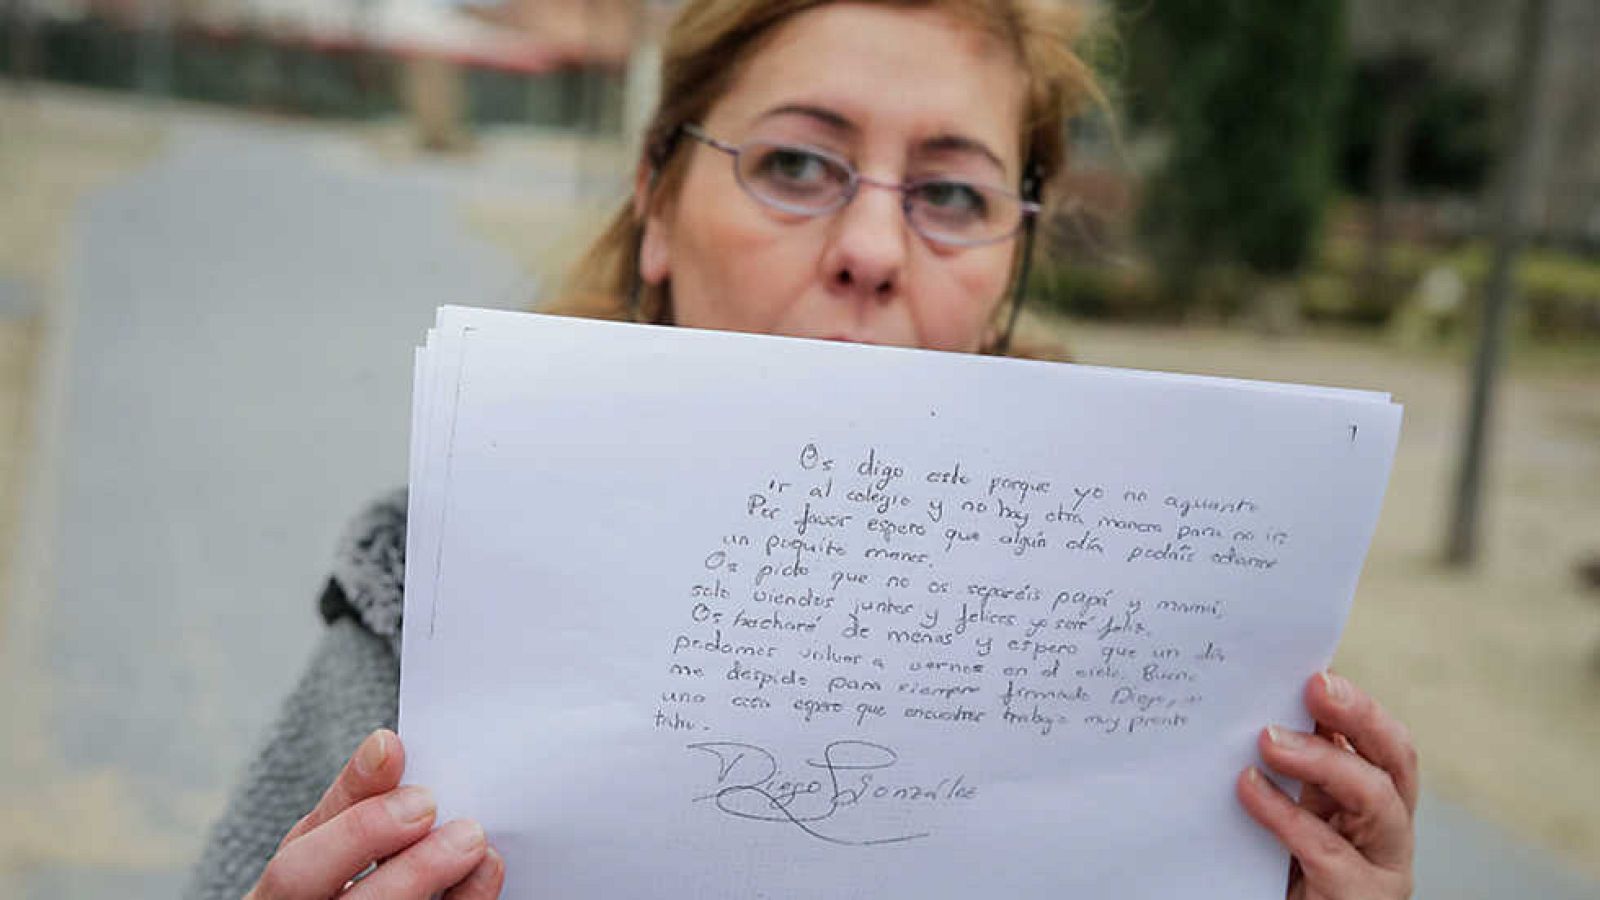 1
Os digo esto porque yo no aguanto
ir al colegio y no hay otra manera para no ir
Por favor espero que algún día podáis odiarme
un poquito menos.
Os pido que no os separéis papá y mamá,
solo viendos juntos y felices yo seré feliz.
Os hecharé de menos y espero que un día
podamos volver a vernos en el cielo. Bueno
me despido para siempre firmado Diego,
una cosa espero que encuentres trabajo muy pronto
tata.
Diego González